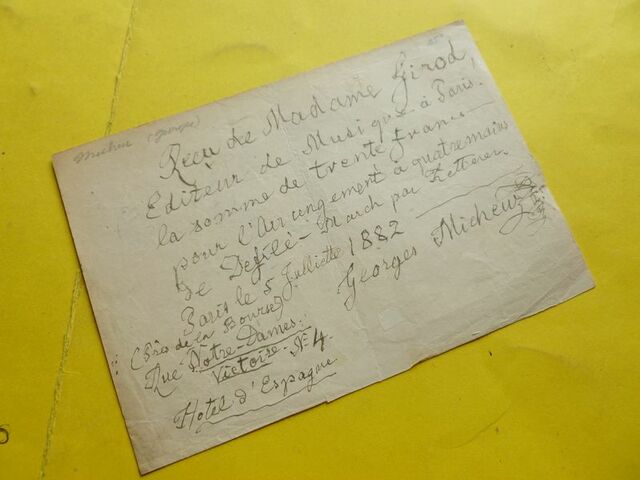 Micheuz (Georges)
Reçu de Madame Girod,
Editeur de Musique à Paris.
la somme de trente francs
pour l'Arrangement à quatremains
de Defilé-March par Ketterer
Paris le 5 Julliette 1882
Georges Micheuz
(Près de la Bourse)
Rue Nôtre-Dames.
Victoire. № 4
Hotel d'Espagne